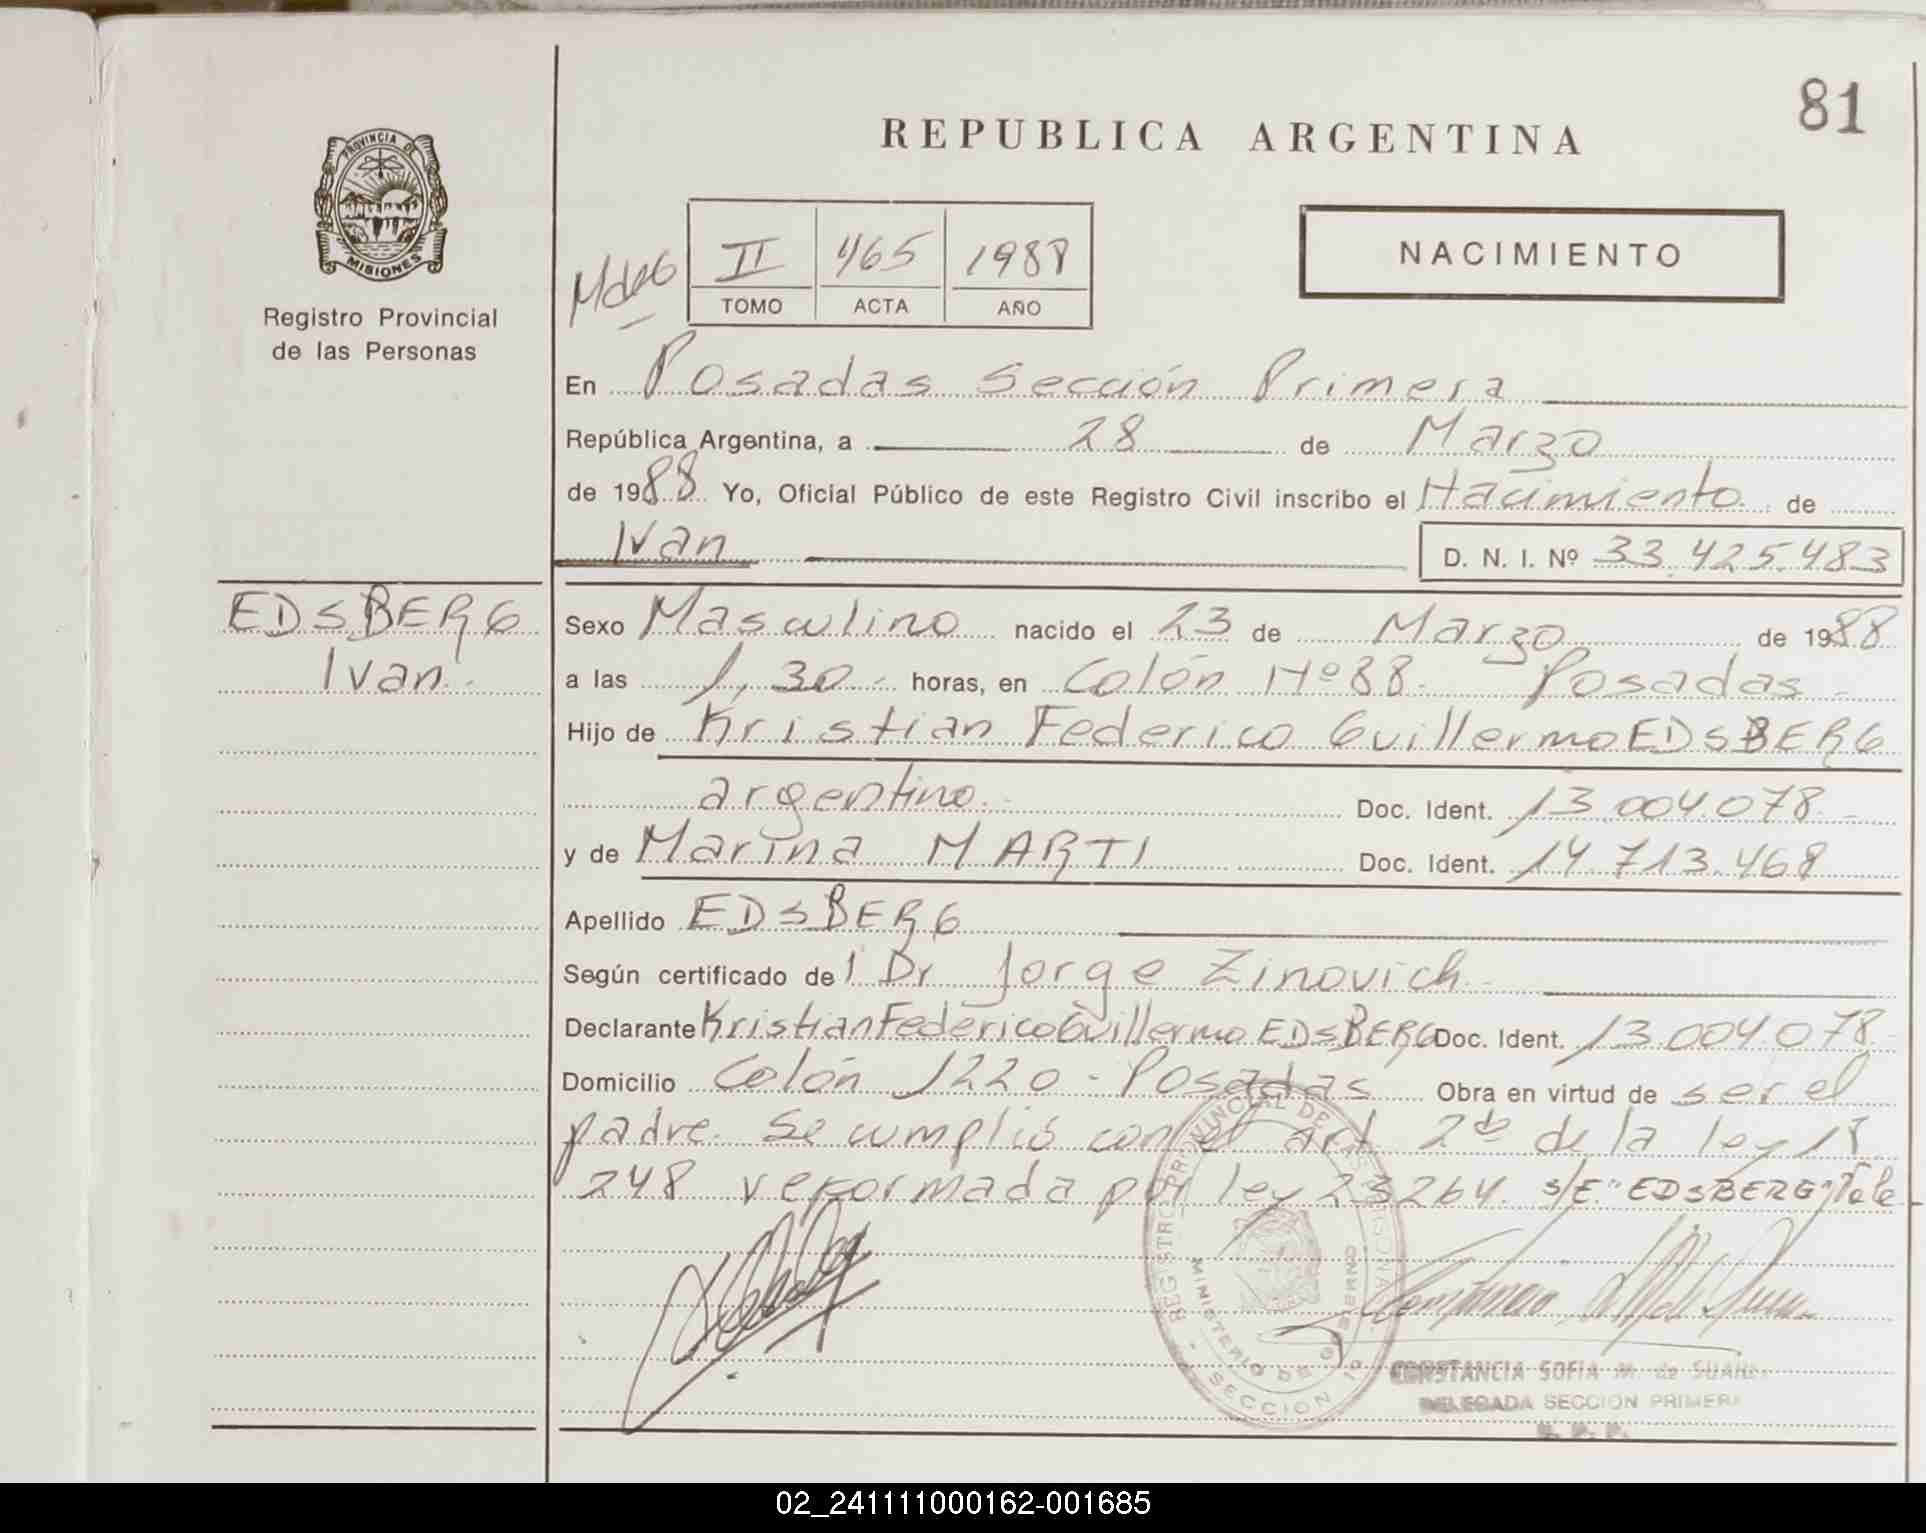 81
REPUBLICA ARGENTINA
PROVINCIA DE
MISIONES
Registro Provincial
de las Personas
II 465 1988
TOMO ACTA AÑO
NACIMIENTO
En Posadas Sección Primera
República Argentina, a 28 de Marzo
de 1988 Yo, Oficial Público de este Registro Civil inscribo el Nacimiento de
Ivan D. N. I. Nº 33.425.483
EDSBERG
Ivan
Sexo Masculino nacido el 23 de Marzo de 1988
a las 1,30 horas, en Colón Nº 88. Posadas
Hijo de Kristian Federico Guillermo EDSBERG
argentino. Doc. Ident. 13.004.078
y de Marina MARTI Doc. Ident. 14.713.468
Apellido EDSBERG
Según certificado de l Dr Jorge Zinovich
Declarante Kristian Federico Guillermo EDSBERG Doc. Ident. 13.004.078
Domicilio Colón 1220 - Posadas Obra en virtud de ser el
padre. Se cumplió con el art 2do de la ley 18
248 reformada por ley 23264. s/E: "EDSBERG" Vale
REGISTRO PROVINCIAL DE LAS PERSONAS
MINISTERIO DE GOBIERNO
SECCION 1ª
CONSTANCIA SOFIA M. de
DELEGADA SECCION PRIMERA
R. P. P.
02_241111000162-001685